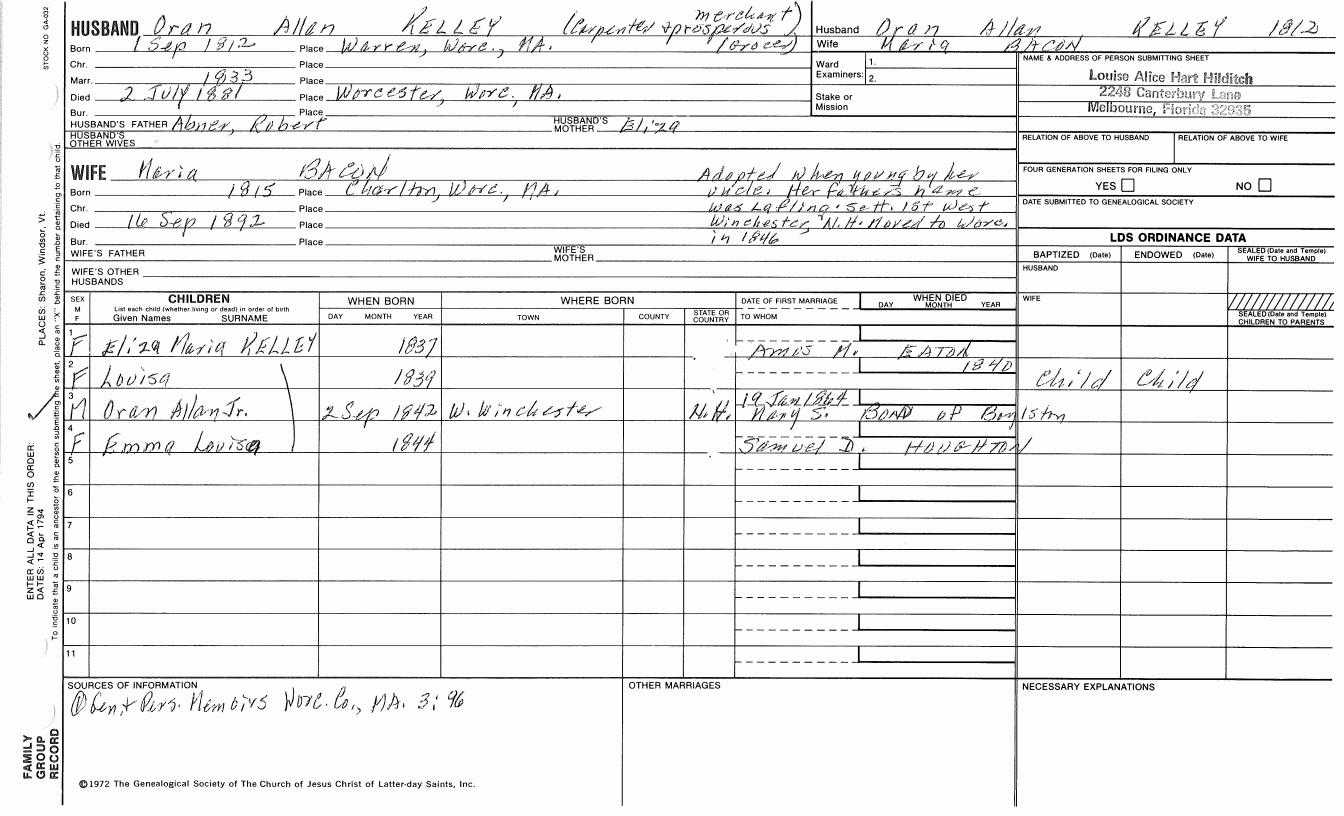 STOCK NO GA-032
HUSBAND Oran Allan KELLEY (Carpenter & prosperous merchant) (Grocer)
Born 1 Sep 1812 Place Warren, Worc., MA.
Chr. Place
Marr. 1833 Place
Died 2 July 1881 Place Worcester, Worc. MA.
Bur. Place
HUSBAND'S FATHER Abner, Robert HUSBAND'S MOTHER Eliza
HUSBAND'S OTHER WIVES
Husband Oran Allan KELLEY 1812
Wife Maria BACON
Ward Examiners: 1.
2.
Stake or Mission
NAME & ADDRESS OF PERSON SUBMITTING SHEET
Louise Alice Hart Hilditch
2248 Canterbury Lane
Melbourne, Florida 32935
RELATION OF ABOVE TO HUSBAND RELATION OF ABOVE TO WIFE
FOUR GENERATION SHEETS FOR FILING ONLY
YES NO
DATE SUBMITTED TO GENEALOGICAL SOCIETY
WIFE Maria BACON
Born 1815 Place Charlton, Worc., MA.
Chr. Place
Died 16 Sep 1892 Place
Bur. Place
Adopted when young by her
uncle. Her father's name
was Lafling. Sett. 1st West
Winchester, N.H. Moved to Worc.
in 1846
WIFE'S FATHER WIFE'S MOTHER
WIFE'S OTHER HUSBANDS
LDS ORDINANCE DATA
BAPTIZED (Date) ENDOWED (Date) SEALED (Date and Temple) WIFE TO HUSBAND
HUSBAND
WIFE
SEALED (Date and Temple) CHILDREN TO PARENTS
SEX M F CHILDREN WHEN BORN WHERE BORN DATE OF FIRST MARRIAGE WHEN DIED
List each child (whether living or dead) in order of birth
Given Names SURNAME DAY MONTH YEAR TOWN COUNTY STATE OR COUNTRY TO WHOM DAY MONTH YEAR
1 F Eliza Maria KELLEY 1837 Amos M. EATON
2 F Louisa 1839 1840 Child Child
3 M Oran Allan Jr. 2 Sep 1842 W. Winchester N.H. 19 Jan 1864 Mary S. BOND of Boylston
4 F Emma Louisa 1844 Samuel D. HOUGHTON
5
6
7
8
9
10
11
SOURCES OF INFORMATION
① Gen. & Pers. Memoirs Worc. Co., MA. 3:96
OTHER MARRIAGES
NECESSARY EXPLANATIONS
©1972 The Genealogical Society of The Church of Jesus Christ of Latter-day Saints, Inc.
FAMILY GROUP RECORD
ENTER ALL DATA IN THIS ORDER:
DATES: 14 Apr 1794
PLACES: Sharon, Windsor, Vt.
To indicate that a child is an ancestor of the person submitting the sheet, place an "X" behind the number pertaining to that child.